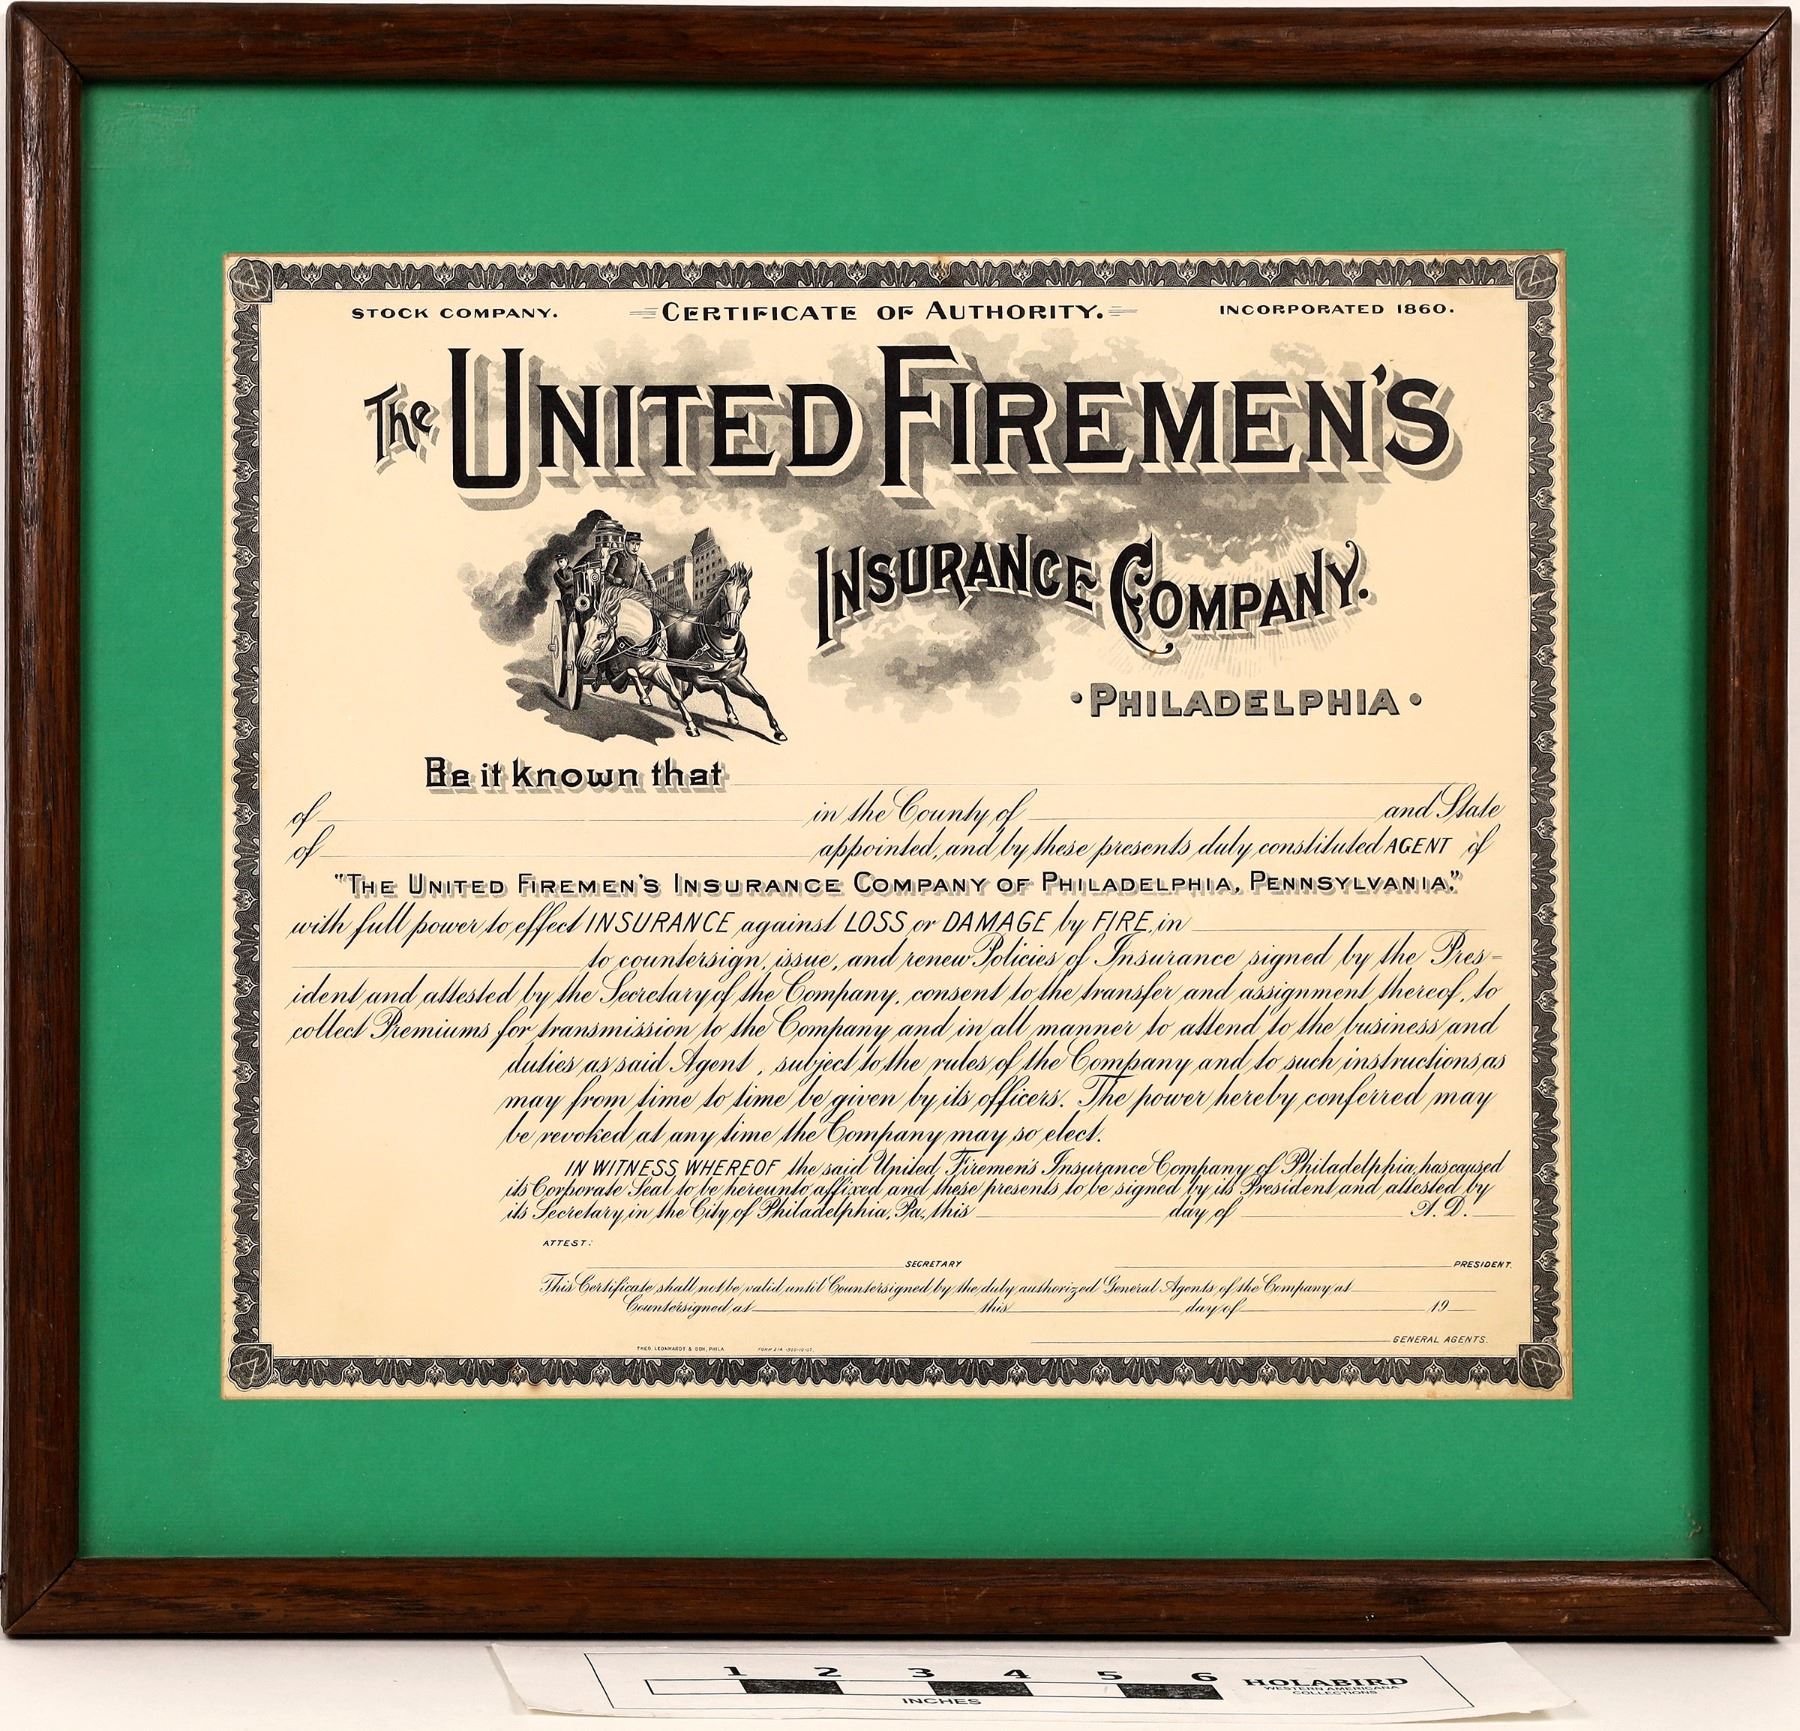 STOCK COMPANY. CERTIFICATE OF AUTHORITY. INCORPORATED 1860.
The UNITED FIREMEN'S
INSURANCE COMPANY.
• PHILADELPHIA •
Be it known that
of in the County of and State
of appointed, and by these presents duly constituted AGENT of
"THE UNITED FIREMEN'S INSURANCE COMPANY OF PHILADELPHIA, PENNSYLVANIA,"
with full power to effect INSURANCE against LOSS or DAMAGE by FIRE, in
to countersign, issue, and renew Policies of Insurance signed by the Pres-
ident and attested by the Secretary of the Company, consent to the transfer and assignment thereof, to
collect Premiums for transmission to the Company and in all manner to attend to the business and
duties as said Agent, subject to the rules of the Company and to such instructions as
may from time to time be given by its officers. The power hereby conferred may
be revoked at any time the Company may so elect.
IN WITNESS WHEREOF the said United Firemen's Insurance Company of Philadelphia, has caused
its Corporate Seal to be hereunto affixed and these presents to be signed by its President and attested by
its Secretary in the City of Philadelphia, Pa., this day of A. D.
ATTEST:
SECRETARY PRESIDENT.
This Certificate shall not be valid until Countersigned by the duly authorized General Agents of the Company at
Countersigned at this day of 19
GENERAL AGENTS.
THEO. LEONHARDT & SON, PHILA.
1 2 3 4 5 6
INCHES
HOLABIRD
WESTERN AMERICANA
COLLECTIONS